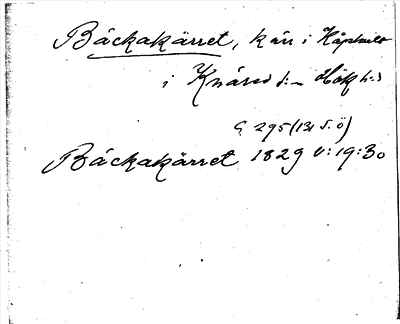 Bäckakärret, kärr i Häphult
i Knäred s:n Hök h:d
G 295 (131 S. ö)
Bäckakärret 1829 U:19:30